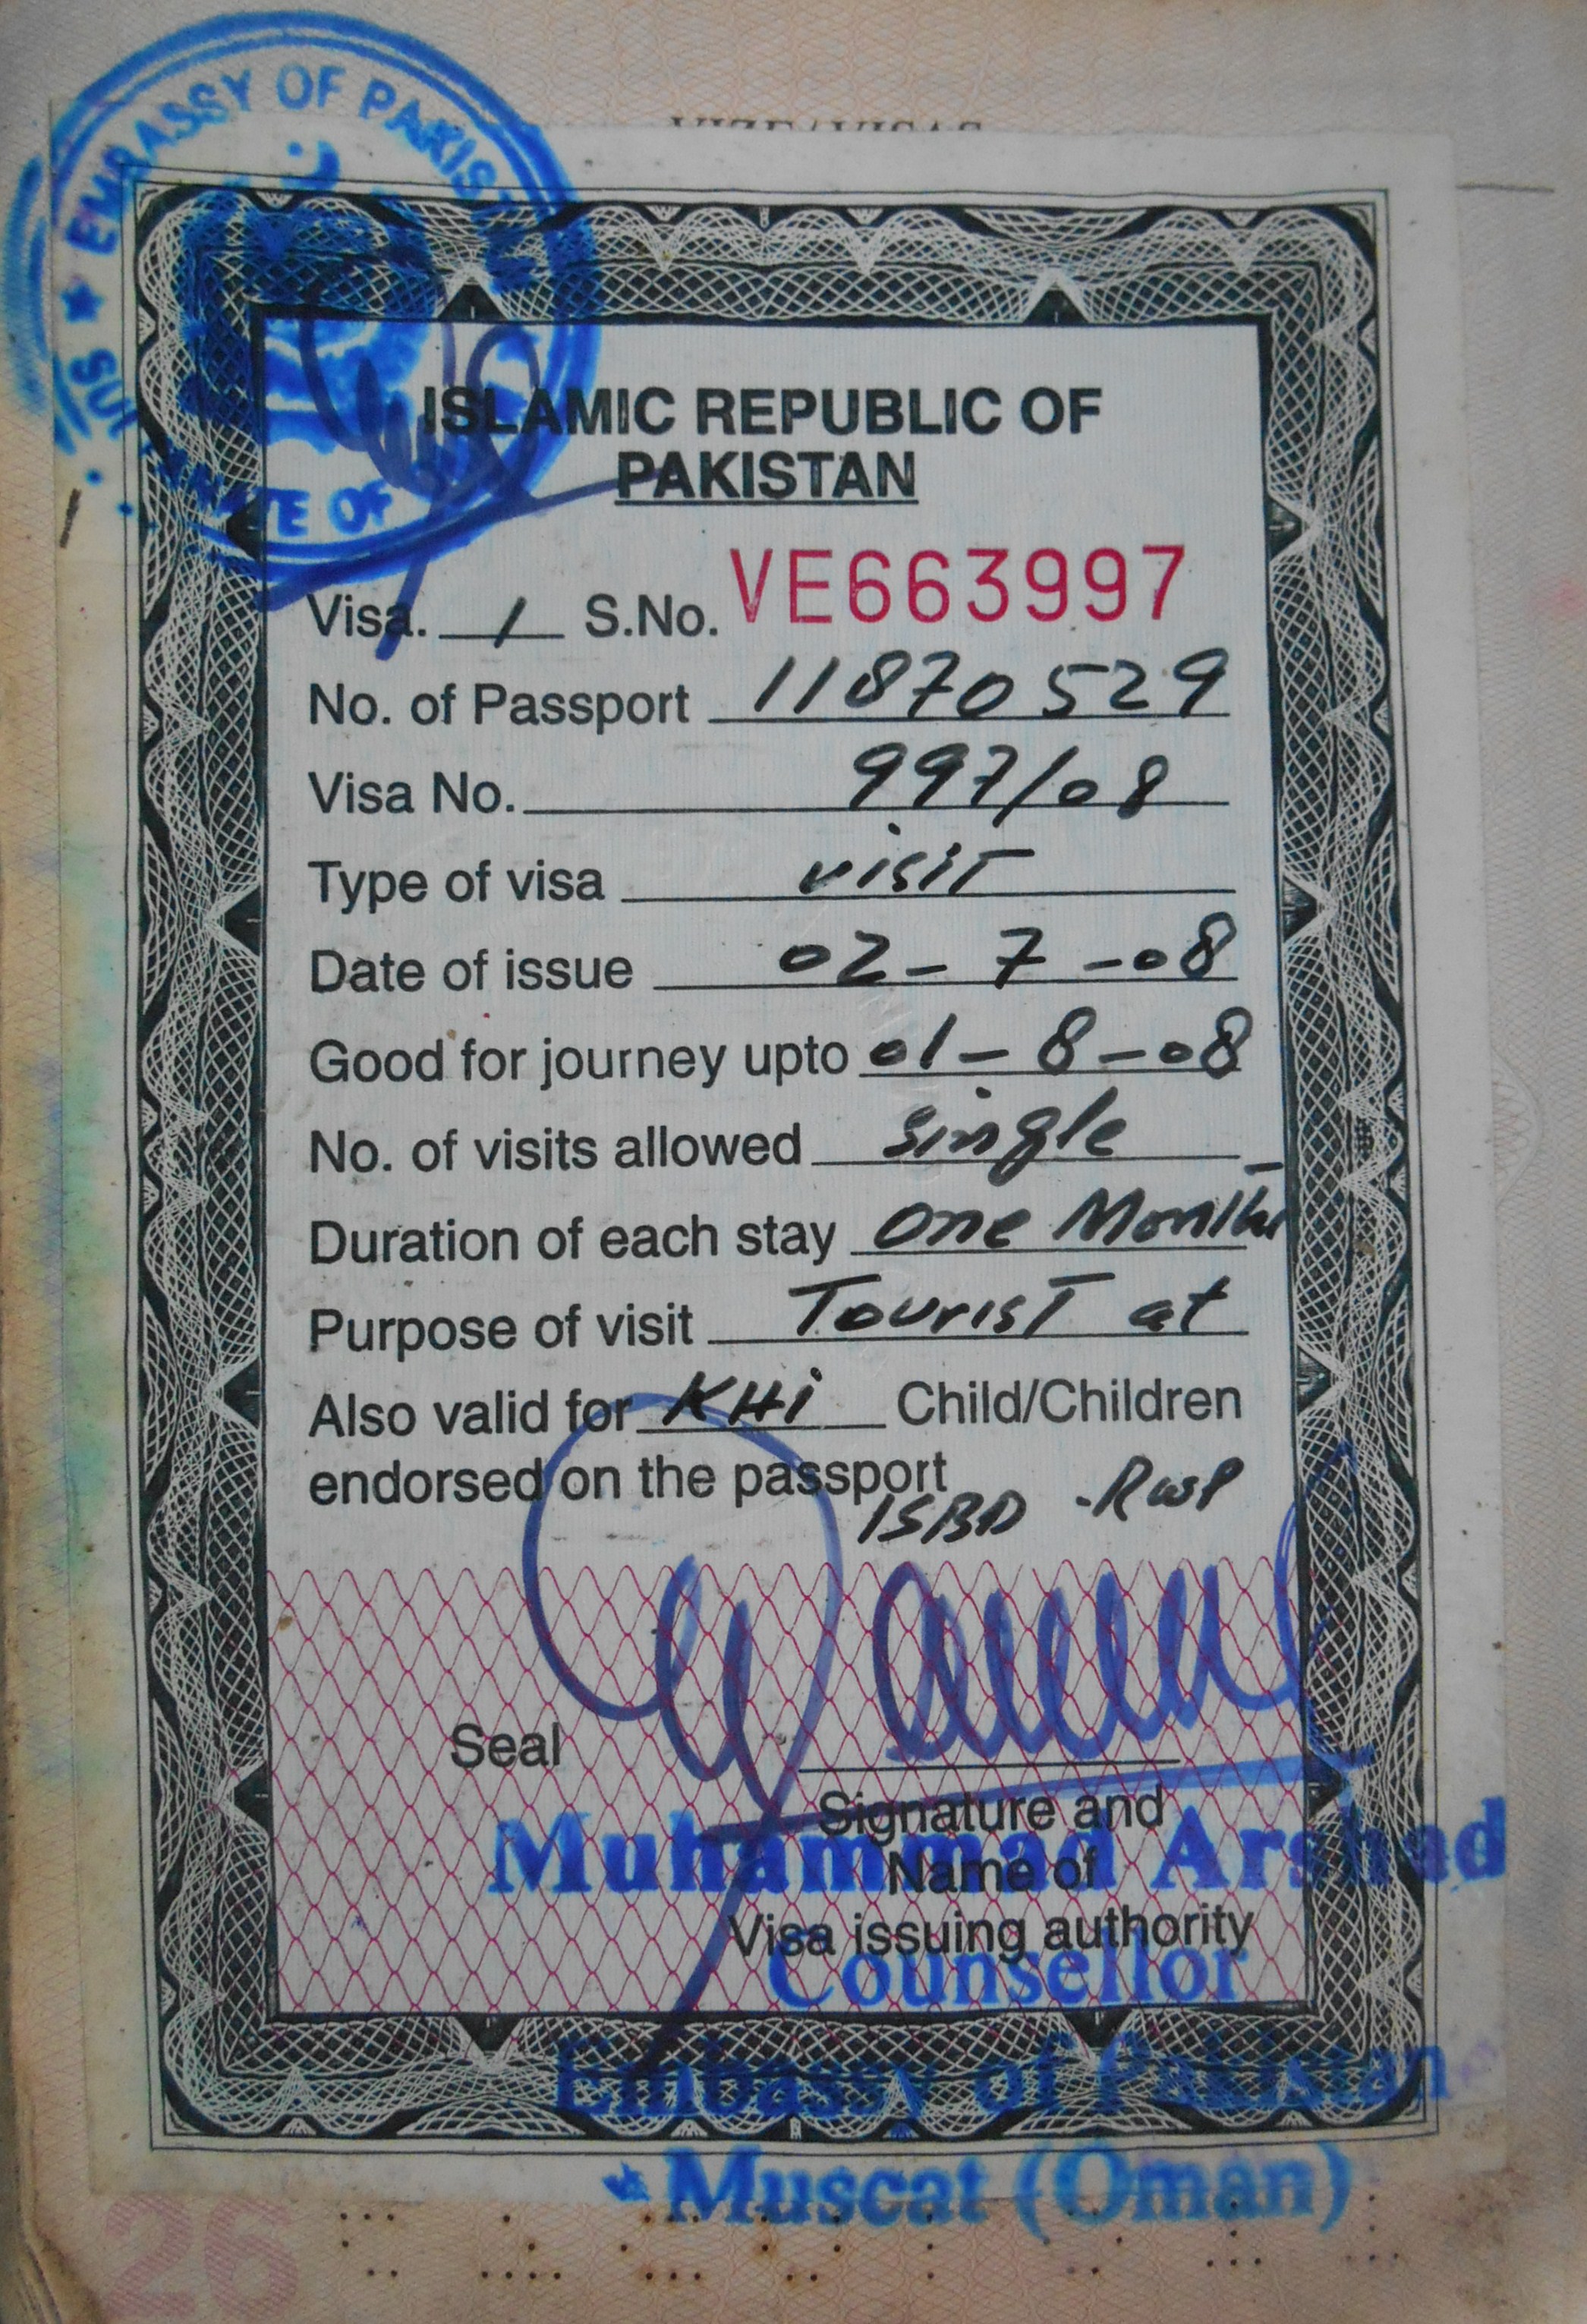 VIZE/VISAS
EMBASSY OF PAKISTAN
SULTANATE OF
ISLAMIC REPUBLIC OF
PAKISTAN
Visa. / S.No. VE663997
No. of Passport 11870529
Visa No. 997/08
Type of visa visit
Date of issue 02-7-08
Good for journey upto 01-8-08
No. of visits allowed single
Duration of each stay one Month
Purpose of visit Tourist at
Also valid for KHi Child/Children
endorsed on the passport
ISBD - RWP
Seal
Signature and
Name of
Visa issuing authority
Muhammad Arshad
Counsellor
Embassy of Pakistan
Muscat (Oman)
26